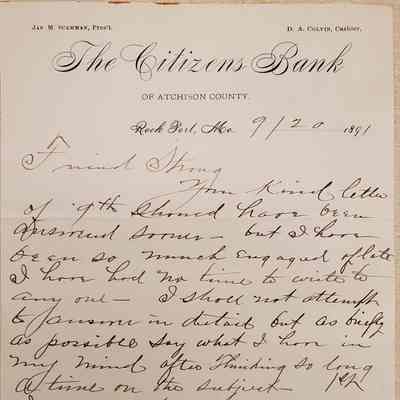 Jas M. Schmman, Pres't.
D. A. Colvin, Cashier.
The Citizens Bank
OF ATCHISON COUNTY.
Rock Port, Mo. 9/20 1891
Friend Strong
Your Kind letter
of 9th should have been
answered sooner – but I have
been so much engaged of late
I have had no time to write to
any one – I shall not attempt
to answer in detail but as briefly
as possible say what I have in
my mind after thinking so long
a time on the subject – 1st